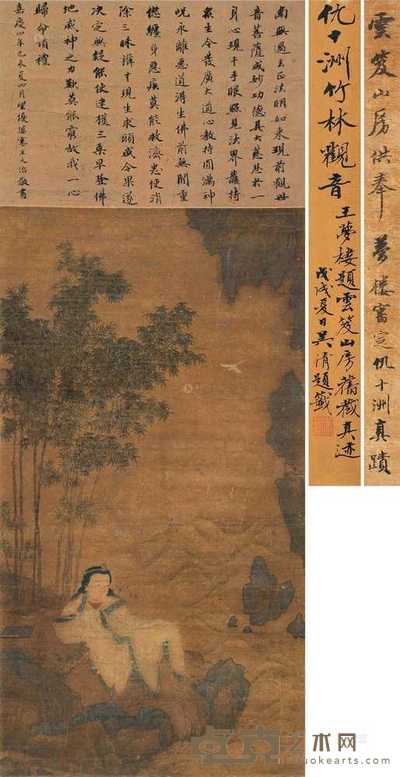 雲笈山房供奉 夢樓審定仇十洲真蹟
仇十洲竹林觀音
王夢樓題雲笈山房舊藏真迹
戊戌夏日吳題籤
南無過去正法明如来現前觀世
音菩薩成妙功德具大慈悲於一
身心現千手眼照見法界護持
衆生令發廣大道心教持圓滿神
呪永離惡道得生佛前無間重
愆纏身惡疾莫能救濟悉使消
除三昧辯才現生求願咸令果遂
決定無疑能使速獲三乘早登佛
地威神之力歎莫能窮故我一心
歸命頂禮
嘉慶四年己未夏四月望優婆塞王文治敬書
艺术网